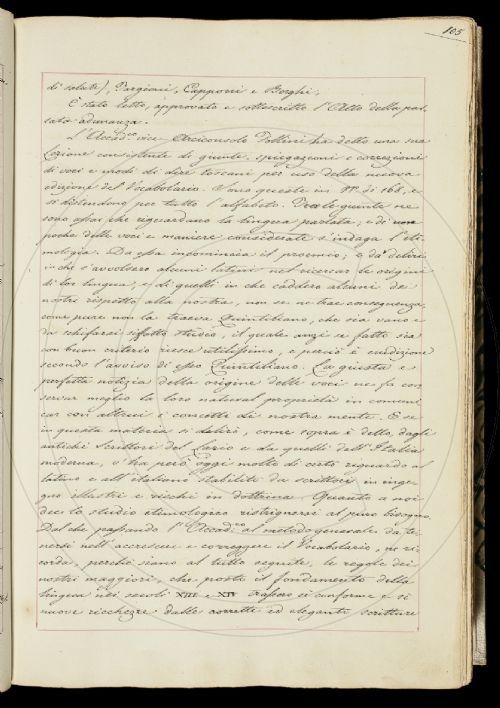 105
di salute), Targioni, Capponi e Borghi.
È stato letto, approvato e sottoscritto l'Atto della pas-
sata adunanza.
L'Accad.co vice Arciconsolo Follini ha detto una sua
Lezione consistente di giunte, spiegazioni e correzioni
di voci e modi di dire toscani per uso della nuova
edizione del Vocabolario. Sono queste in n.° di 168, e
si distendono per tutto l'alfabeto. Tra le giunte ne
sono assai che riguardano la lingua parlata; e di non
poche delle voci e maniere considerate s'indaga l'eti-
mologia. Da essa incomincia il proemio; e da' delirj
in che s'avvolsero alcuni latini nel ricercar le origini
di lor lingua, e di quelli in che caddero alcuni de'
nostri rispetto alla nostra, non se ne trae conseguenza,
come pure non la traeva Quintiliano, che sia vano e
da schifarsi siffatto studio, il quale anzi se fatto sia
con buon criterio riesce utilissimo, e perciò è erudizione
secondo l'avviso di esso Quintiliano. La giusta e
perfetta notizia della origine delle voci ne fa con
servar meglio la loro natural proprietà in comuni
car con altrui i concetti di nostra mente. E se
in questa materia si delirò, come sopra è detto, dagli
antichi scrittori del Lazio e da quelli dell'Italia
moderna, v'ha però oggi molto di certo riguardo al
latino e all'italiano stabilito da scrittori in inge-
gno illustri e ricchi in dottrina. Quanto a noi
dee lo studio etimologico ristrignersi al puro bisogno.
Dal che passando l'Accad.co al metodo generale da te-
nersi nell'accrescere e correggere il Vocabolario, ne ri-
corda, perchè siano al tutto seguite, le regole dei
nostri maggiori, che posto il fondamento della
lingua nei secoli XIII e XIV trassero ei conforme e sì
nuove ricchezze dalle corrette ed eleganti scritture